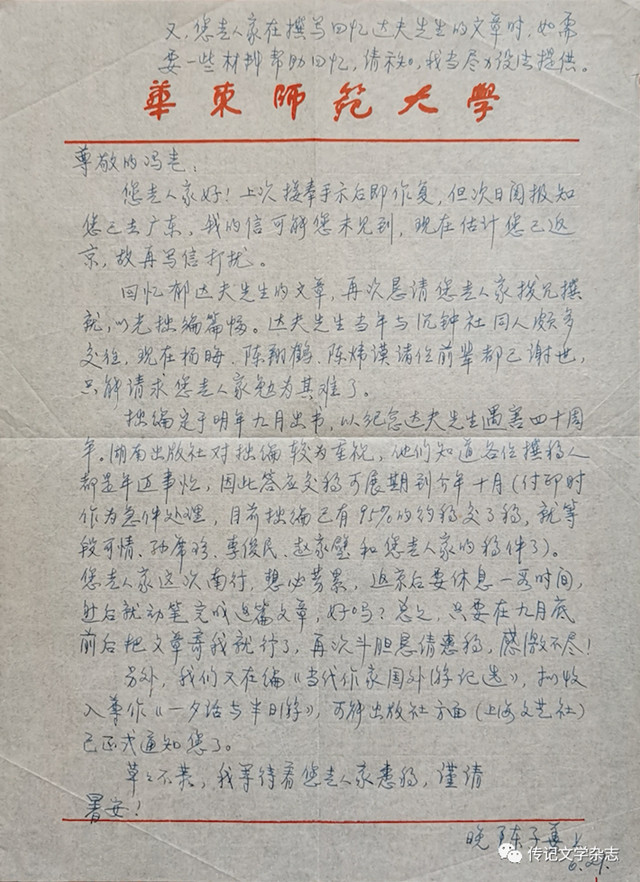 又，您老人家在撰写回忆达夫先生的文章时，如需
要一些材料帮助回忆，请示知，我当尽力设法提供。
華東師範大學
尊敬的冯老：
您老人家好！上次接奉手示后即作复，但次日阅报知
您已去广东，我的信可能您未见到，现在估计您已返
京，故再写信打扰。
回忆郁达夫先生的文章，再次恳请您老人家拨冗撰
就，以光拙编篇幅。达夫先生当年与沉钟社同人颇多
交往，现在杨晦、陈翔鹤、陈炜谟诸位前辈都已谢世，
只能请求您老人家勉为其难了。
拙编定于明年九月出书，以纪念达夫先生遇害四十周
年。湖南出版社对拙编较为重视，他们知道各位撰稿人
都是年迈事忙，因此答应交稿可展期到今年十月（付印时
作为急件处理，目前拙编已有95%的约稿交了稿，就等
段可情、孙席珍、李俊民、赵家璧和您老人家的稿件了）。
您老人家这次南行，想必劳累，返京后要休息一段时间，
然后就动笔完成这篇文章，好吗？总之，只要在九月底
前后把文章寄我就行了，再次斗胆恳请惠稿，感激不尽！
另外，我们又在编《当代作家国外游记选》，拟收
入尊作《一夕话与半日游》，可能出版社方面（上海文艺社）
已正式通知您了。
草草不恭，我等待着您老人家惠稿，谨请
暑安！
晚 陈子善上
6.29.
传记文学杂志